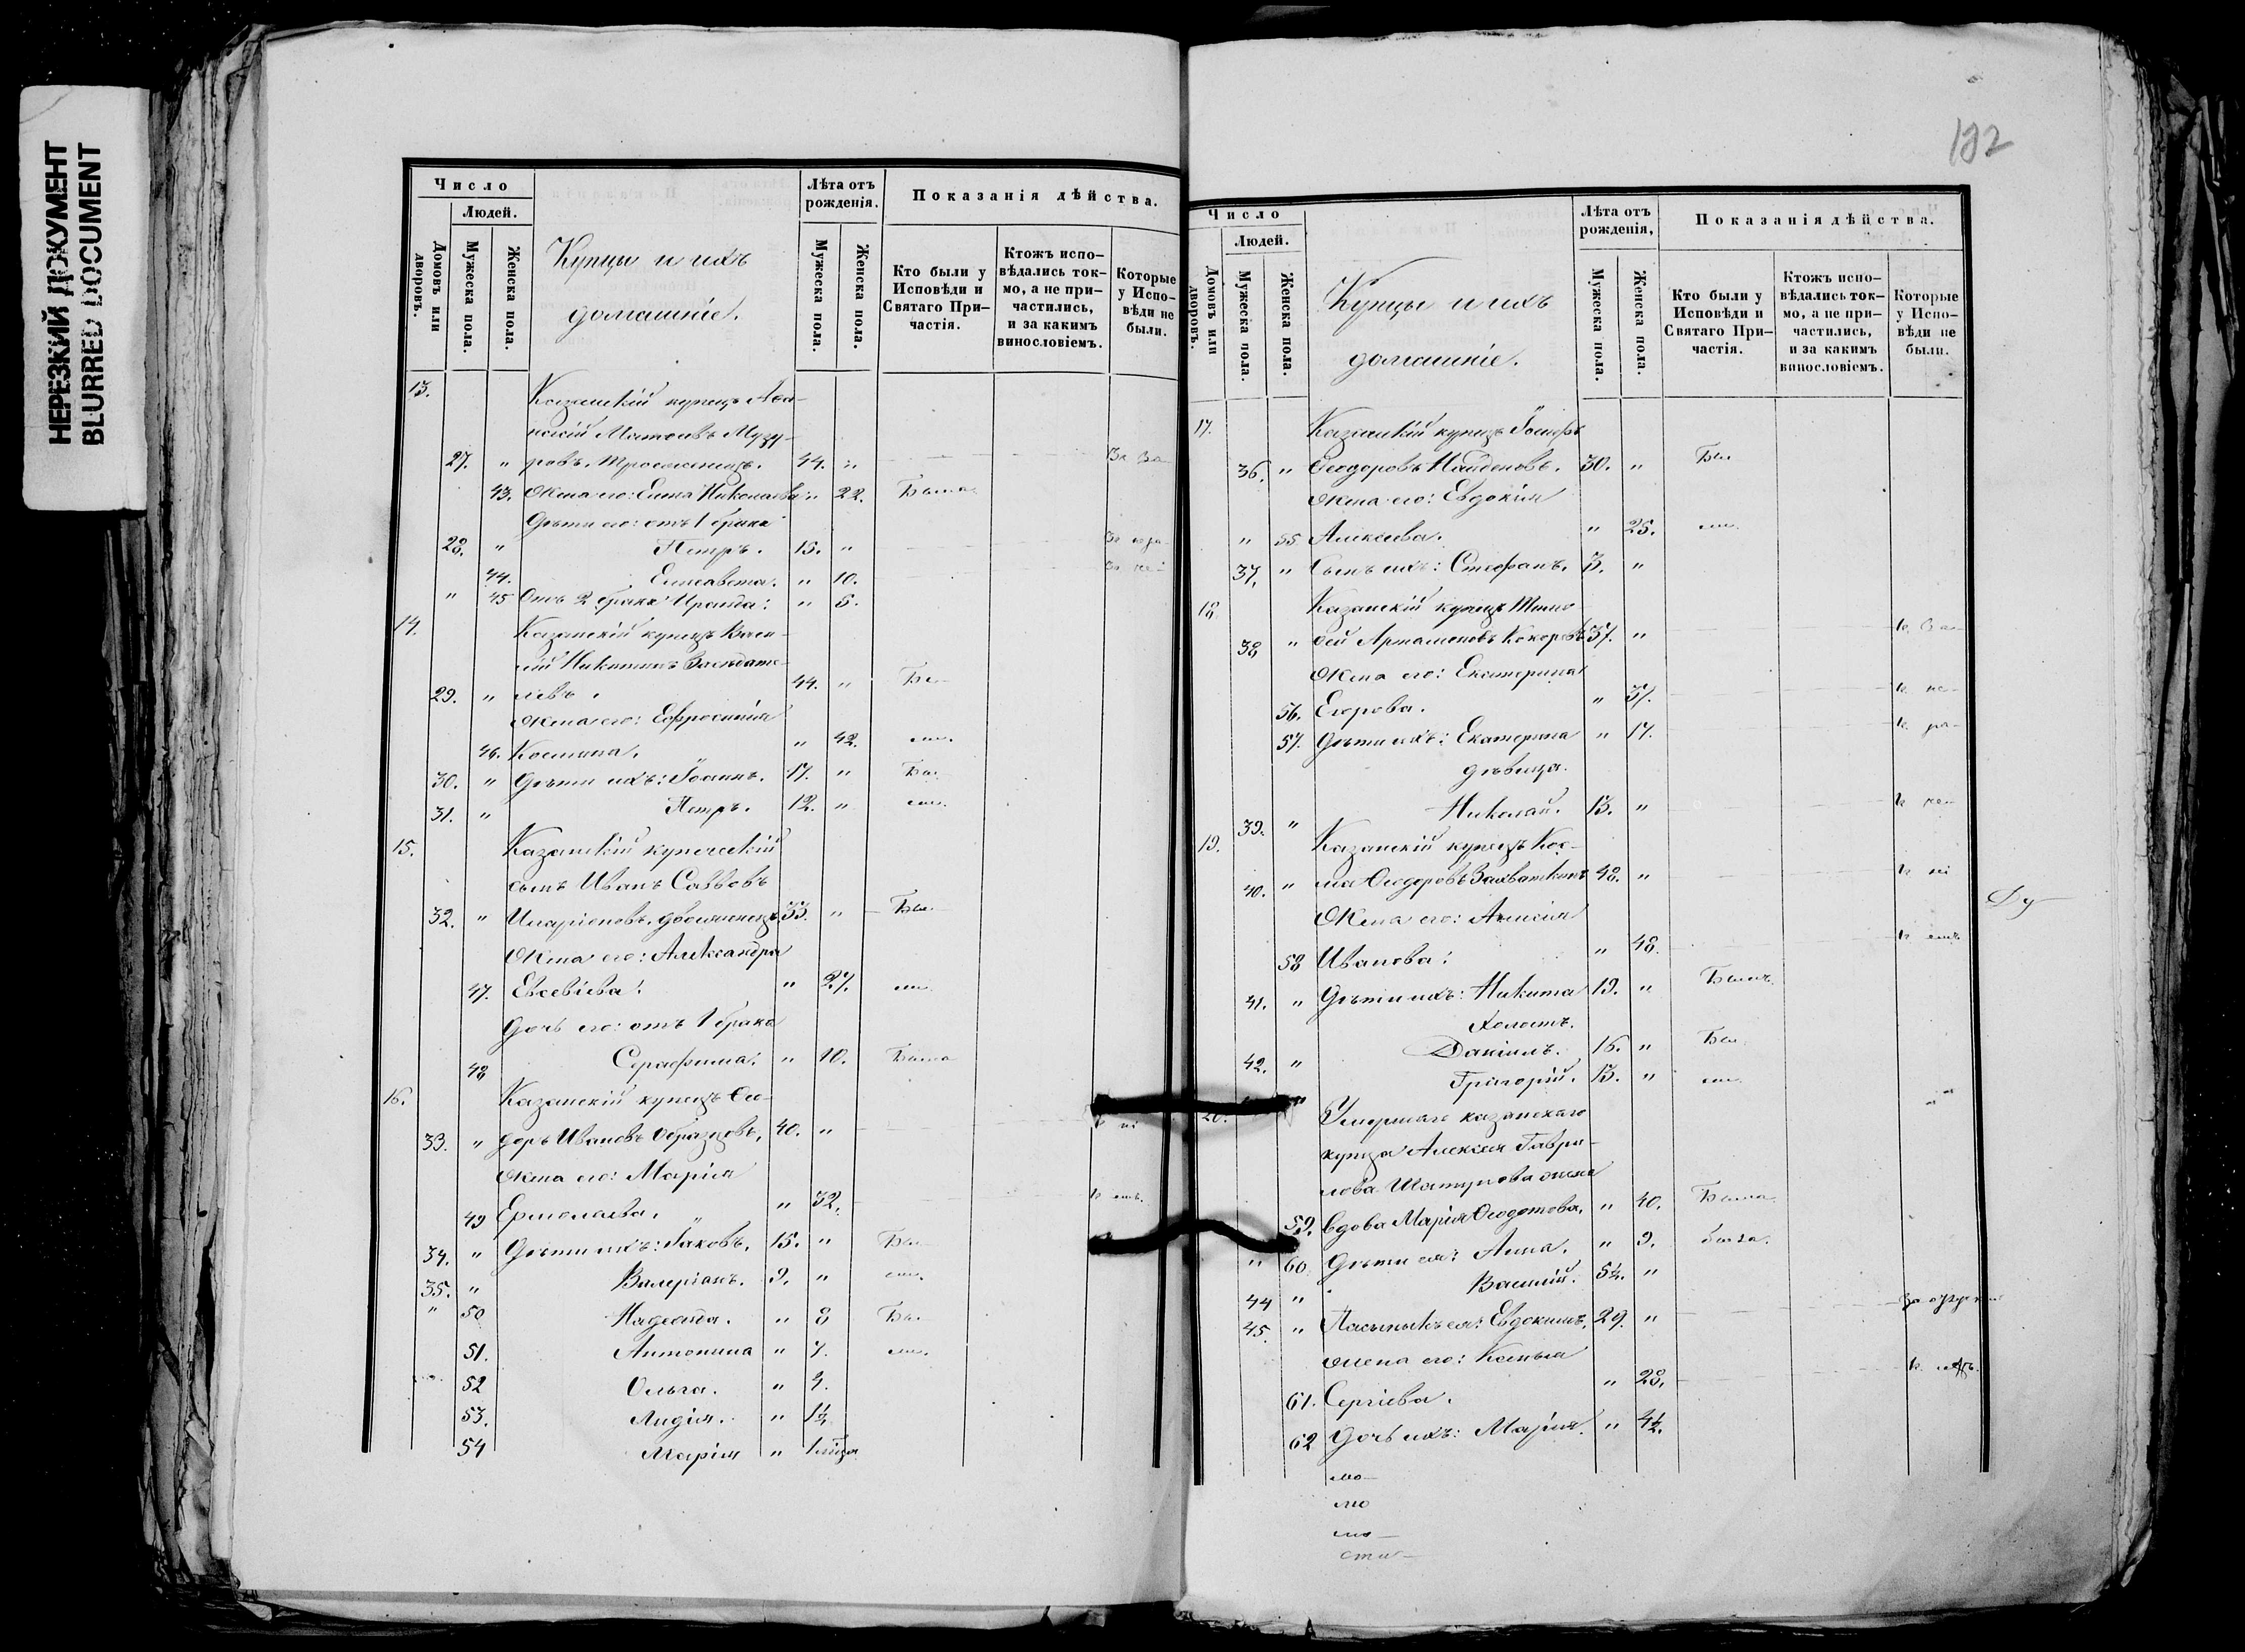 НЕРЕЗКИЙ ДОКУМЕНТ
BLURRED DOCUMENT
Число
Людей.
Домовъ или дворовъ.
Мужеска пола.
Женска пола.
Купцы и ихъ
домашніе.
Лѣта отъ
рожденія.
Мужеска пола.
Женска пола.
Показанія дѣйства.
Кто были у
Исповѣди и
Святаго При-
частія.
Ктожъ испо-
вѣдались ток-
мо, а не при-
частились,
и за какимъ
винословіемъ.
Которые
у Испо-
вѣди не
были.
13. Казанскій купецъ Аѳа-
насій Матвѣевъ Музу-
27. " ровъ. Троеженецъ. 44. "
43. Жена его: Елена Николаева " 22. Была
Дѣти его: отъ 1 брака
28. " Петръ. 15. "
44. Елисавета. " 10.
" 45 Отъ 2 брака Ираида: " 5.
14. Казанскій купецъ Васи-
лій Никитинъ Засѣдате-
29. " левъ. 44. " Бы-
Жена его: Евфросинія
46. Космина. " 42. ли.
30. " Дѣти ихъ: Іоаннъ. 17. " Бы-
31. " Петръ. 12. " ли.
15. Казанскій купеческій
сынъ Иванъ Саввовъ
32. " Иларіоновъ. двоеженецъ 33. " Бы-
Жена его: Александра
47. Евсевіева. " 27. ли.
Дочь его: отъ 1 брака
48 Серафима. " 10. Была
16. Казанскій купецъ Ѳео-
33. " доръ Ивановъ Образцовъ. 40. "
Жена его: Марія
49 Ермолаева. " 32.
34. " Дѣти ихъ: Іаковъ. 15. " Бы-
35. " Валеріанъ. 9. " ли.
" 50 Надежда. " 8 Бы-
51. Антонина " 7. ли.
52 Ольга. " 4.
53. Лидія. " 1½
54 Марія " 1 мѣся
192
Число
Людей.
Домовъ или дворовъ.
Мужеска пола.
Женска пола.
Купцы и ихъ
домашніе.
Лѣта отъ
рожденія,
Мужеска пола.
Женска пола.
Показанія дѣйства.
Кто были у
Исповѣди и
Святаго При-
частія.
Ктожъ испо-
вѣдались ток-
мо, а не при-
частились,
и за какимъ
винословіемъ.
Которые
у Испо-
вѣди не
были.
17. Казанскій купецъ Іосифъ
36. " Ѳеодоровъ Найденовъ. 30. " Бы
Жена его: Евдокія
" 55 Алексѣева. " 25. ли.
37. " Сынъ ихъ: Стефанъ. 3. "
18 Казанскій купецъ Тимо-
38 " ѳей Артамоновъ Кокоревъ 37. "
Жена его: Екатерина
56. Егорова. " 37.
57. Дѣти ихъ: Екатерина " 17.
дѣвица.
39. " Николай. 13. "
19. Казанскій купецъ Кос-
40. " ма Ѳеодоровъ Захваткинъ 48. "
Жена его: Анисія
58 Иванова: " 48.
41. " Дѣти ихъ: Никита 19. " Былъ
Холостъ.
42. " Даніилъ. 16. " Бы
Григорій. 13. " ли.
20. Умершаго казанскаго
купца Алексѣя Гаври-
лова Шатунова жена
59. вдова Марія Ѳеодотова. " 40. Была
" 60. Дѣти ея: Анна. " 9. была.
44 " Василій. 5½. "
45. " Пасынокъ ея: Евдокимъ. 29. "
жена его: Ксенія
61. Сергіева. " 28.
62 Дочь ихъ: Марія. " 4½.